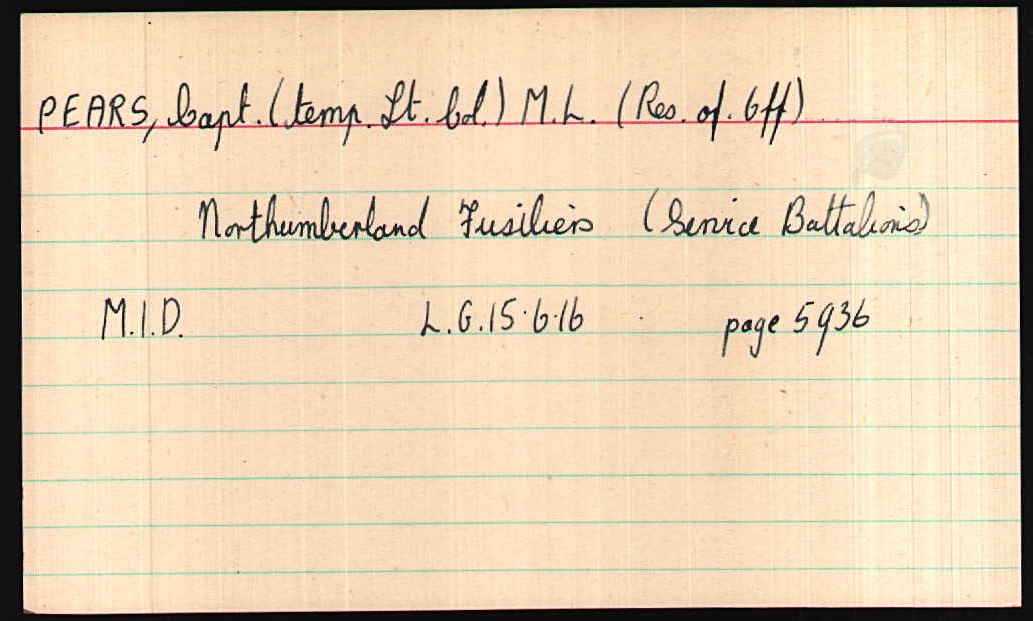 PEARS, Capt. (temp. Lt. Col.) M.L. (Res. of. Off)
Northumberland Fusiliers (Service Battalions)
M.I.D. L.G. 15.6.16 page 5936